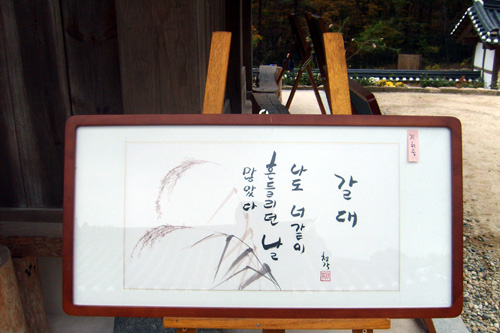 갈대
나도 너같이
흔들리던 날
많았다